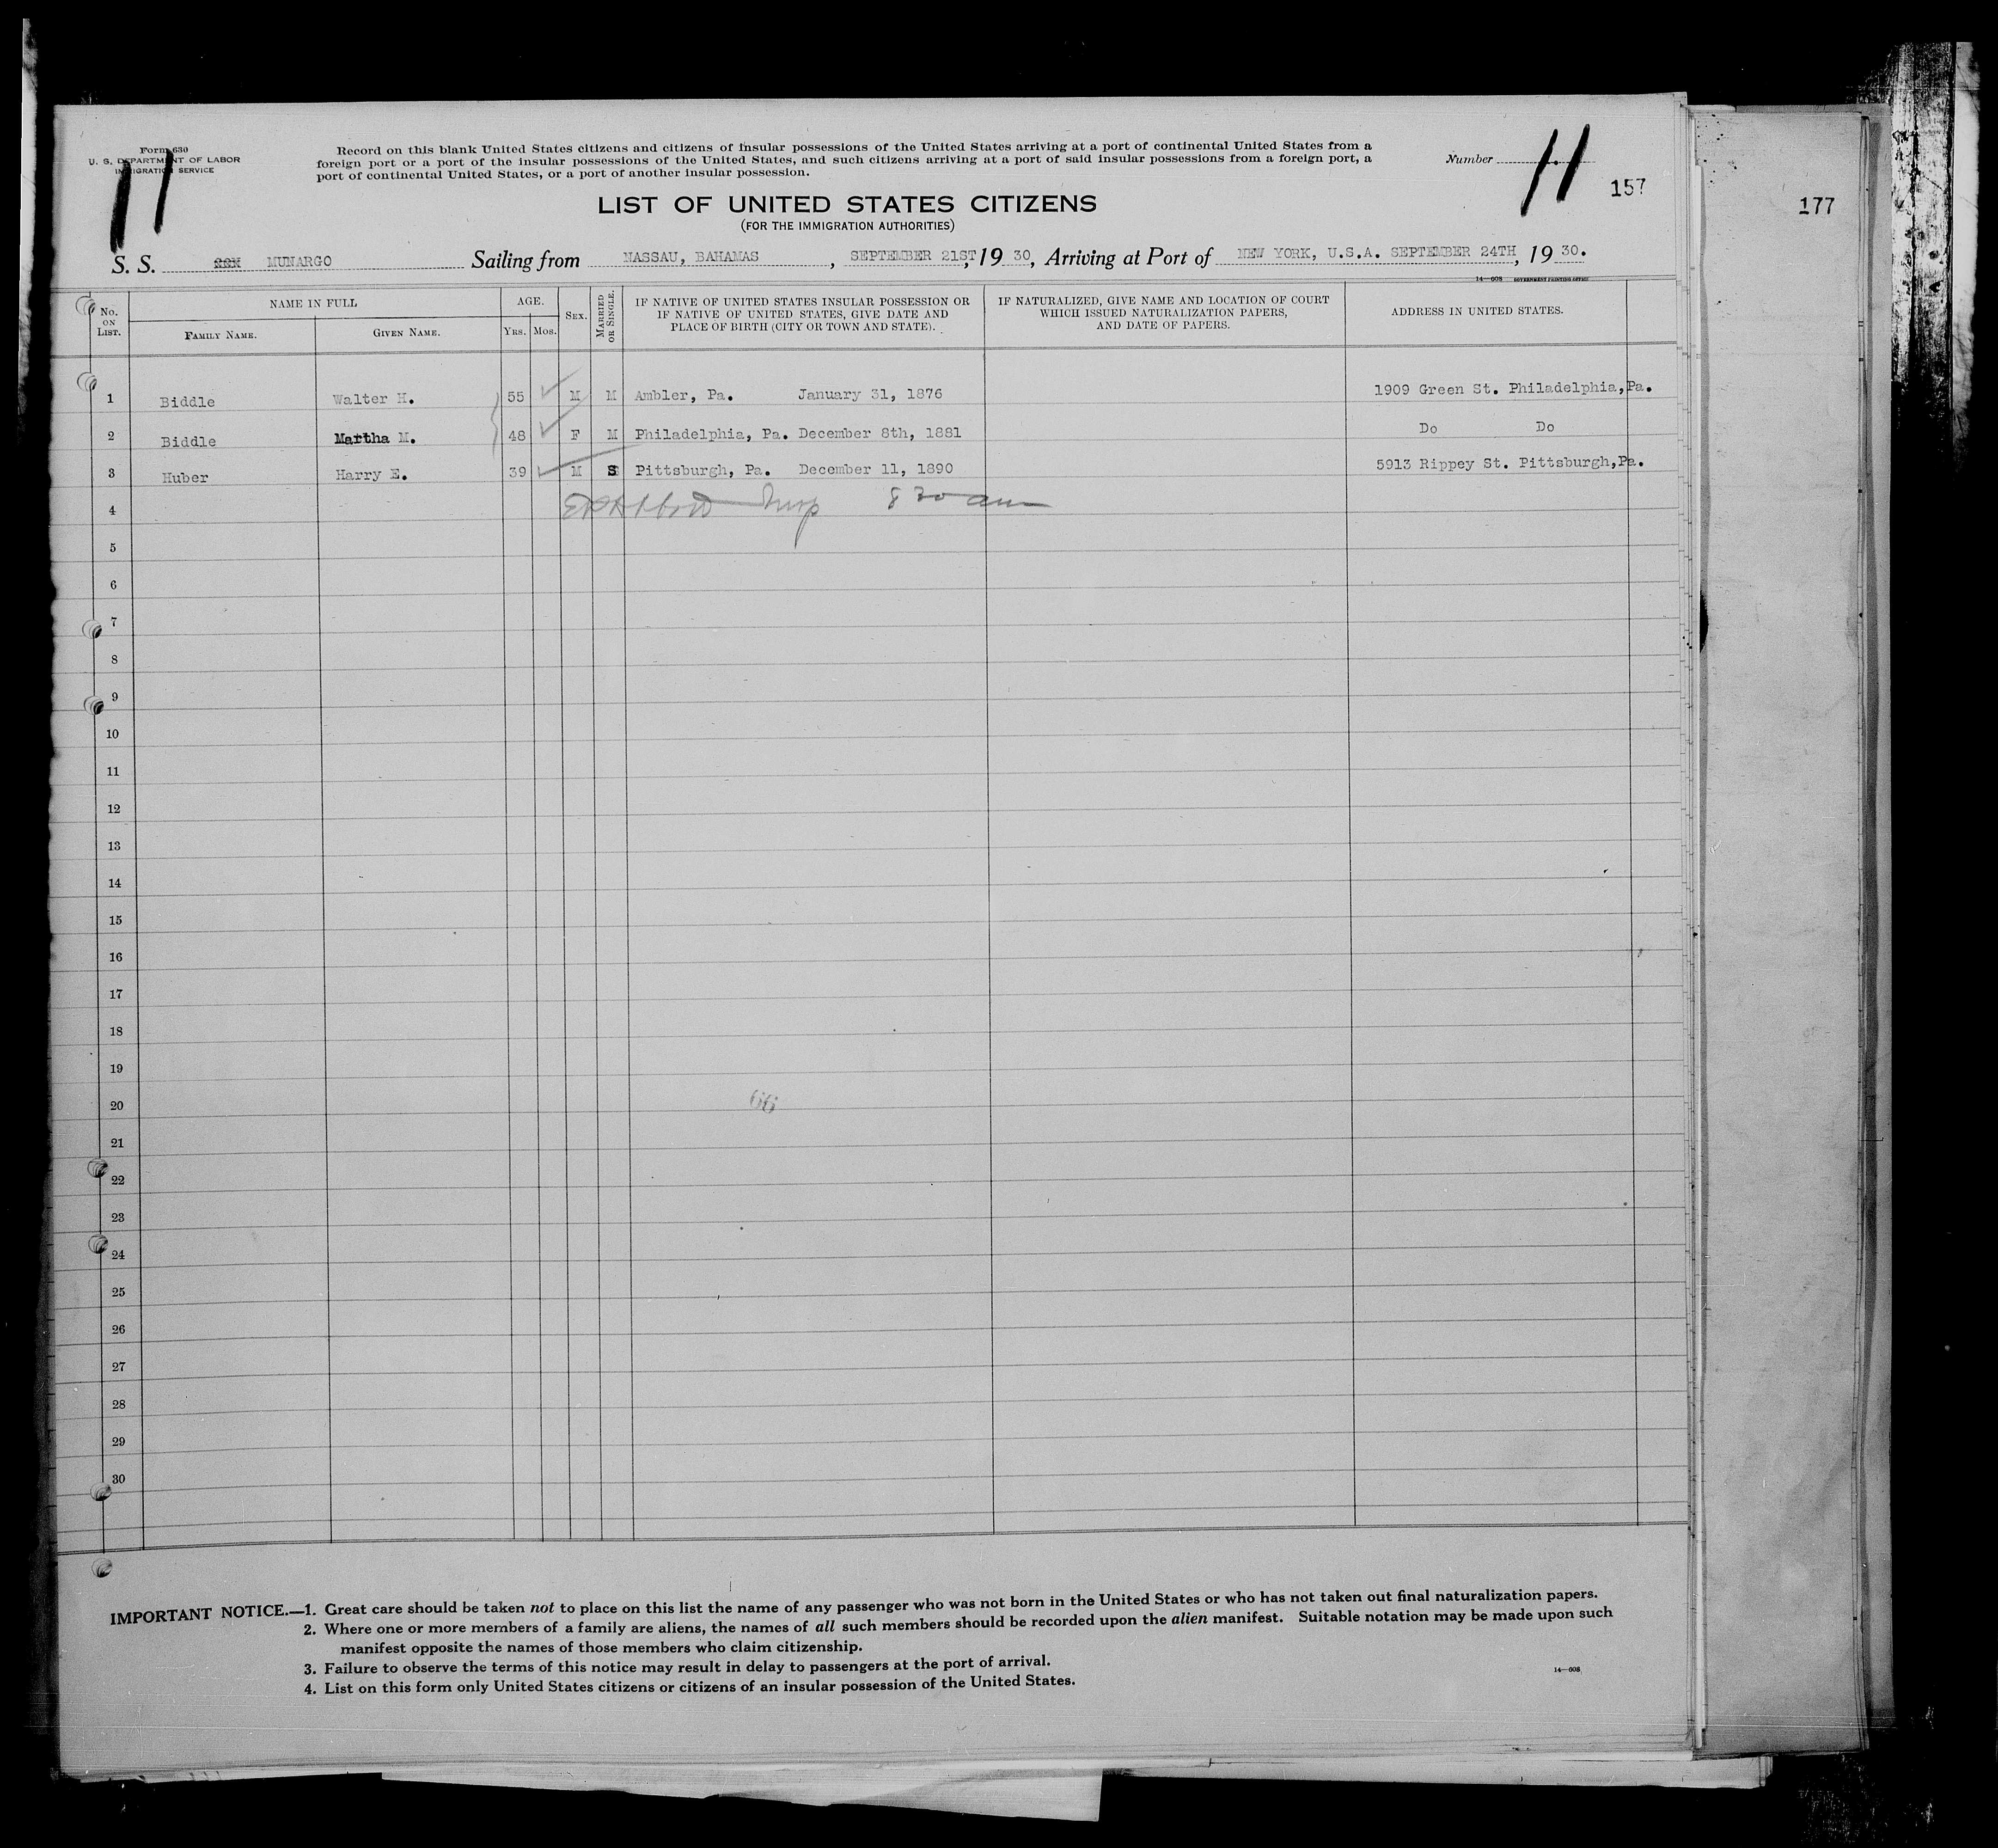 Form 630
U. S. DEPARTMENT OF LABOR
IMMIGRATION SERVICE
11
Record on this blank United States citizens and citizens of insular possessions of the United States arriving at a port of continental United States from a
foreign port or a port of the insular possessions of the United States, and such citizens arriving at a port of said insular possessions from a foreign port, a
port of continental United States, or a port of another insular possession.
Number 11
157
177
LIST OF UNITED STATES CITIZENS
(FOR THE IMMIGRATION AUTHORITIES)
S. S. MUNARGO Sailing from NASSAU, BAHAMAS, SEPTEMBER 21ST, 19 30, Arriving at Port of NEW YORK, U.S.A. SEPTEMBER 24TH, 19 30.
14—608 GOVERNMENT PRINTING OFFICE
No. ON LIST. NAME IN FULL FAMILY NAME. GIVEN NAME. AGE. YRS. MOS. SEX. MARRIED OR SINGLE. IF NATIVE OF UNITED STATES INSULAR POSSESSION OR IF NATIVE OF UNITED STATES, GIVE DATE AND PLACE OF BIRTH (CITY OR TOWN AND STATE). IF NATURALIZED, GIVE NAME AND LOCATION OF COURT WHICH ISSUED NATURALIZATION PAPERS, AND DATE OF PAPERS. ADDRESS IN UNITED STATES.
1 Biddle Walter H. 55 M M Ambler, Pa. January 31, 1876 1909 Green St. Philadelphia, Pa.
2 Biddle Martha M. 48 F M Philadelphia, Pa. December 8th, 1881 Do Do
3 Huber Harry E. 39 M S Pittsburgh, Pa. December 11, 1890 5913 Rippey St. Pittsburgh, Pa.
4 Insp 8 30 am
5
6
7
8
9
10
11
12
13
14
15
16
17
18
19
20 66
21
22
23
24
25
26
27
28
29
30
IMPORTANT NOTICE.—1. Great care should be taken not to place on this list the name of any passenger who was not born in the United States or who has not taken out final naturalization papers.
2. Where one or more members of a family are aliens, the names of all such members should be recorded upon the alien manifest. Suitable notation may be made upon such
manifest opposite the names of those members who claim citizenship.
3. Failure to observe the terms of this notice may result in delay to passengers at the port of arrival.
4. List on this form only United States citizens or citizens of an insular possession of the United States.
14—608